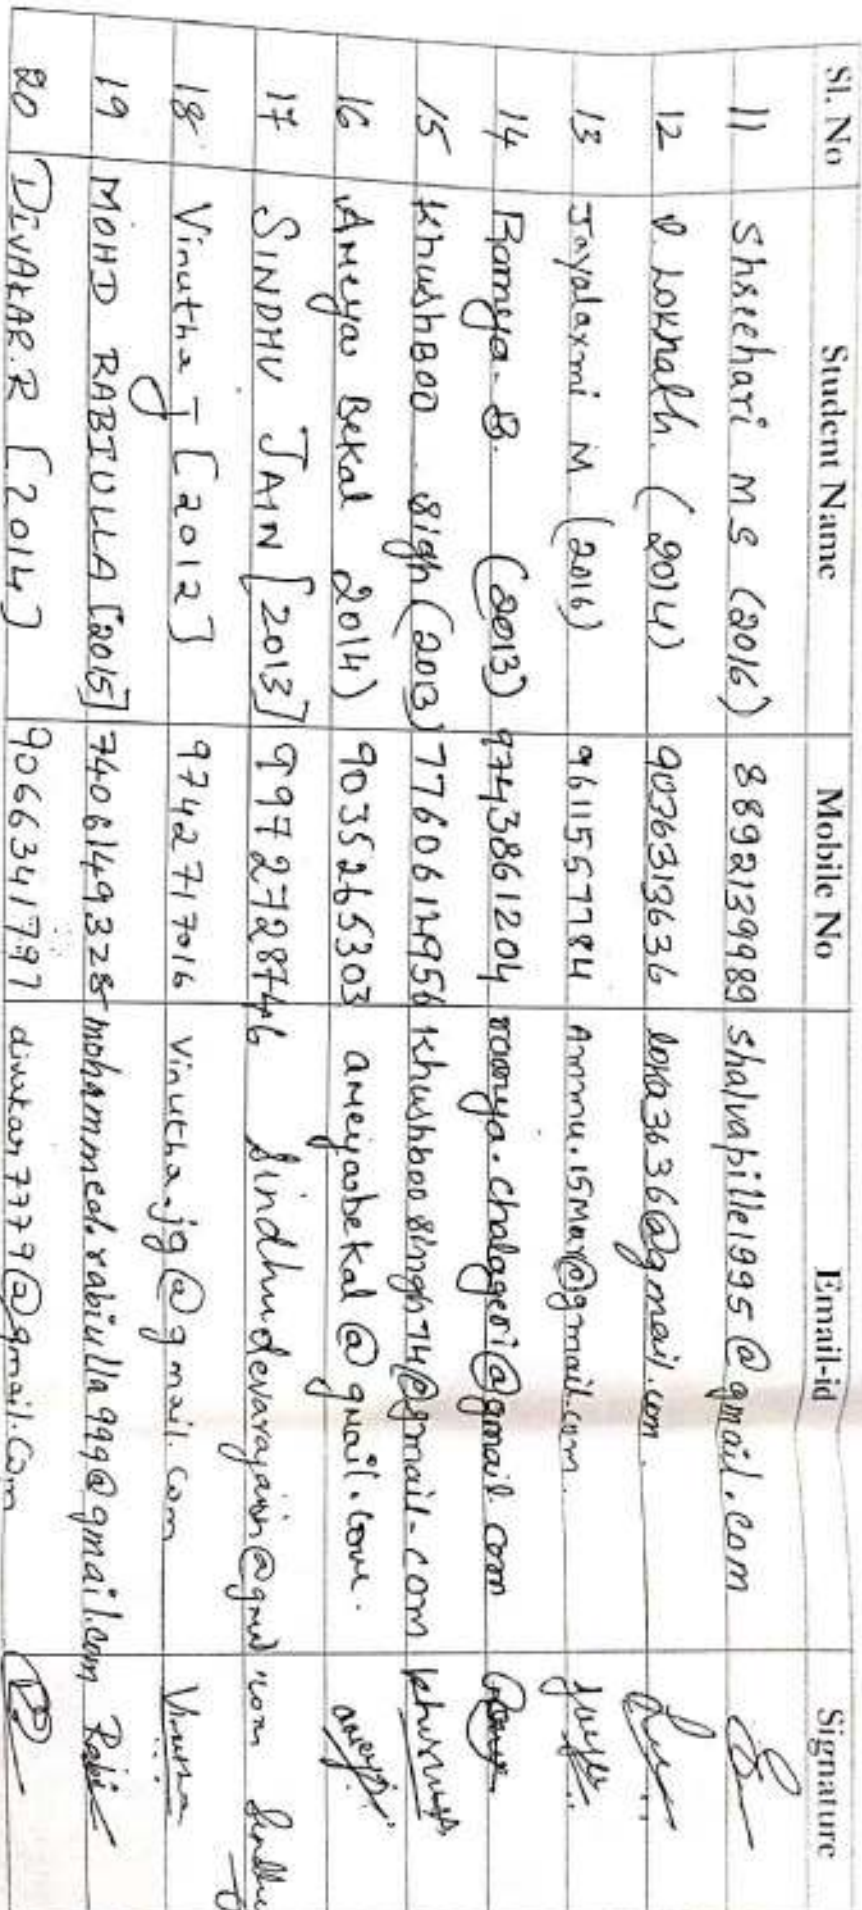 Sl. No Student Name Mobile No Email-id Signature
11 Shreehari M S (2016) 8892139989 shalvapille1995@gmail.com
12 P. Loknath. (2014) 9036313636 loka3636@gmail.com.
13 Jayalaxmi M. (2016) 9611557784 Ammu.15Mar@gmail.com.
14 Ramya. B. (2013) 9743861204 ramya.chalageri@gmail.com
15 KhushBoo Sigh (2013) 7760612956 Khushboosingh74@gmail.com
16 Ameya Bekal 2014) 9035265303 ameyabekal@gmail.com.
17 SINDHU JAIN [2013] 9972728746
18 Vinutha J [2012] 9742717016 Vinutha.jg@gmail.com Vinutha
19 MOHD RABIULLA [2015] 7406149328 mohammed.rabiulla999@gmail.com Rabi
20 DIVAKAR.R [2014] 9066341797 divakar7779@gmail.com